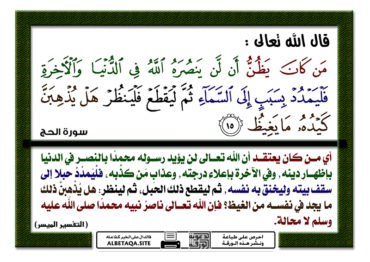 قال الله تعالى :
مَن كَانَ يَظُنُّ أَن لَّن يَنصُرَهُ اللَّهُ فِي الدُّنْيَا وَالْآخِرَةِ
فَلْيَمْدُدْ بِسَبَبٍ إِلَى السَّمَاءِ ثُمَّ لْيَقْطَعْ فَلْيَنظُرْ هَلْ يُذْهِبَنَّ
كَيْدُهُ مَا يَغِيظُ ١٥
سورة الحج
أي مـن كان يعتقـد أن الله تعـالى لن يؤيد رسـوله محمدًا بالنصـر في الدنيا
بإظهـار دينه، وفي الآخرة بإعلاء درجته، وعذاب مَن كذَّبه، فلْيَمدُدْ حبلا إلى
سقف بيته وليخنق به نفسه، ثم ليقطع ذلك الحبل، ثم لينظر: هل يُذْهِبنَّ ذلك
ما يجد في نفسـه من الغيظ؟ فإن الله تعالى ناصرٌ نبيه محمدًا صلى الله عليه
وسلم لا محالة.
(التفسير الميسر)
احرص على طباعة
ونشر هذه الورقة
ALBETAQA.SITE